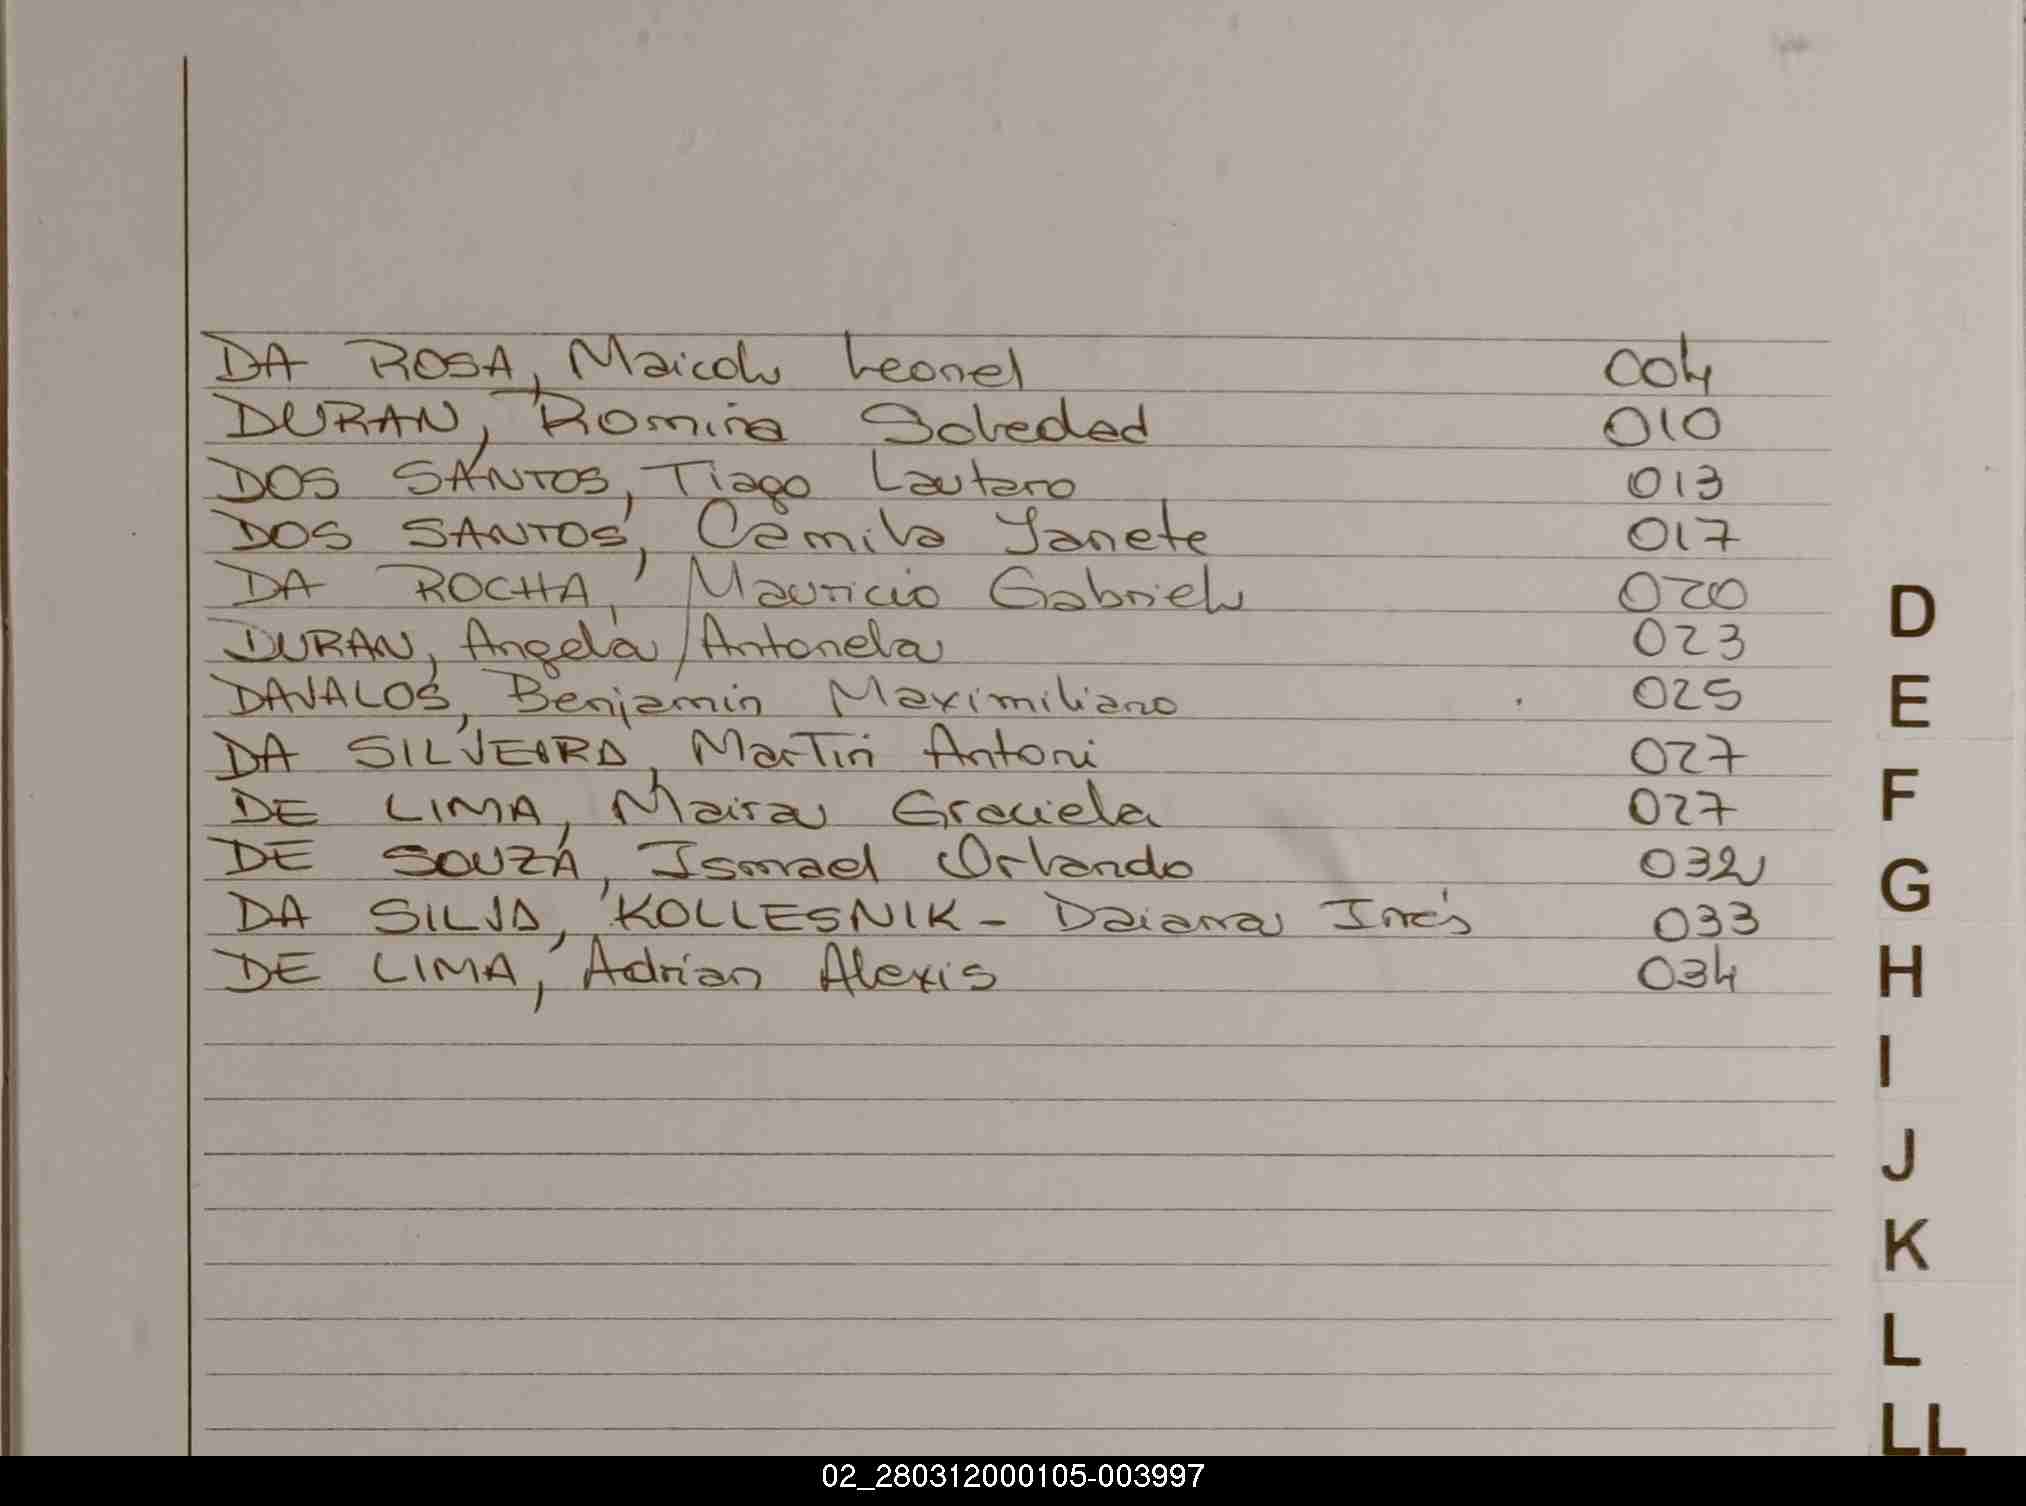 DA ROSA, Maicol Leonel 004
DURAN, Romina Soledad 010
DOS SANTOS, Tiago Lautaro 013
DOS SANTOS, Camila Yanete 017
DA ROCHA, Mauricio Gabriel 020
DURAN, Angela Antonela 023
DAVALOS, Benjamin Maximiliano 025
DA SILVEIRA, Martin Antoni 027
DE LIMA, Maira Graciela 027
DE SOUZA, Ismael Orlando 032
DA SILVA, KOLLESNIK - Daiana Inés 033
DE LIMA, Adrian Alexis 034
D
E
F
G
H
I
J
K
L
LL
02_280312000105-003997